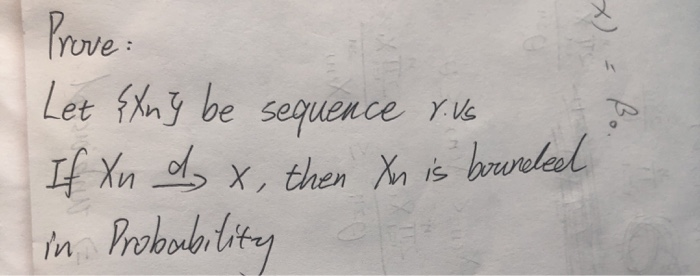 Prove:
Let {Xn} be sequence r.vs
If Xn d→ X, then Xn is bounded
in Probability
X) = β0.